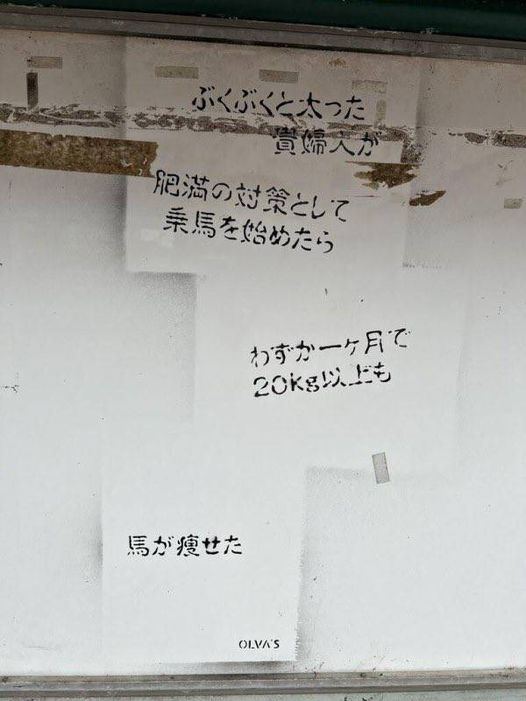 ぶくぶくと太った
貴婦人が
肥満の対策として
乗馬を始めたら
わずか一ヶ月で
20kg以上も
馬が痩せた
OLVA'S